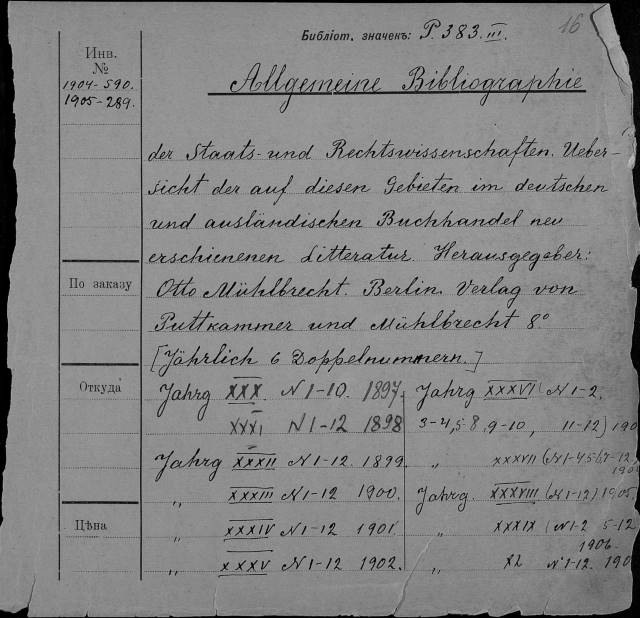 Библіот. значекъ: P. 383. III.
16
Инв.
№
1904-590.
1905-289.
Allgemeine Bibliographie
der Staats- und Rechtswissenschaften. Ueber-
sicht der auf diesen Gebieten im deutschen
und ausländischen Buchhandel neu
erschienenen Litteratur. Herausgegeber:
По заказу
Otto Mühlbrecht. Berlin. Verlag von
Puttkammer und Mühlbrecht 8°
[Jährlich 6 Doppelnummern.]
Откуда
Jahrg XXX. N 1-10. 1897.
XXXI N 1-12 1898
Jahrg XXXII N 1-12. 1899.
„ XXXIII N 1-12 1900.
Цѣна
„ XXXIV N 1-12 1901.
„ XXXV N 1-12 1902.
Jahrg XXXVI (N 1-2.
3-4, 5-8, 9-10, 11-12) 190
„ XXXVII
190
Jahrg. XXXVIII (N 1-12) 1905.
„ XXXIX (N 1-2 5-12
1906.
„ XL N 1-12. 190